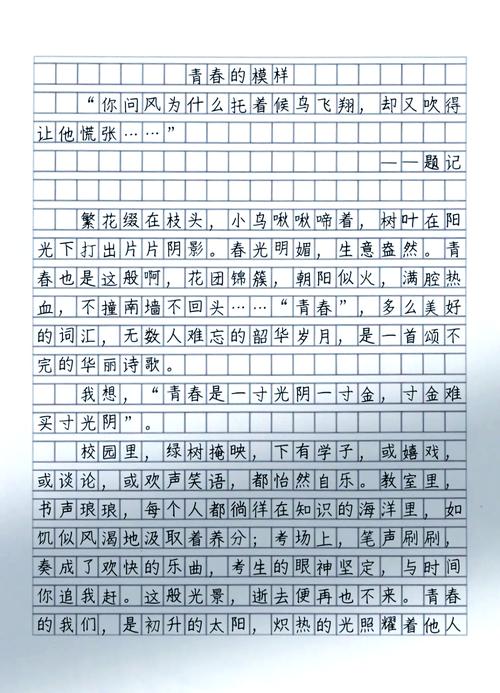 青春的模样
“你问风为什么托着候鸟飞翔，却又吹得
让他慌张……”
——题记
繁花缀在枝头，小鸟啾啾啼着，树叶在阳
光下打出片片阴影。春光明媚，生意盎然。青
春也是这般啊，花团锦簇，朝阳似火，满腔热
血，不撞南墙不回头……“青春”，多么美好
的词汇，无数人难忘的韶华岁月，是一首颂不
完的华丽诗歌。
我想，“青春是一寸光阴一寸金，寸金难
买寸光阴”。
校园里，绿树掩映，下有学子，或嬉戏，
或谈论，或欢声笑语，都怡然自乐。教室里，
书声琅琅，每个人都徜徉在知识的海洋里，如
饥似风渴地汲取着养分；考场上，笔声刷刷，
奏成了欢快的乐曲，考生的眼神坚定，与时间
你追我赶。这般光景，逝去便再也不来。青春
的我们，是初升的太阳，炽热的光照耀着他人